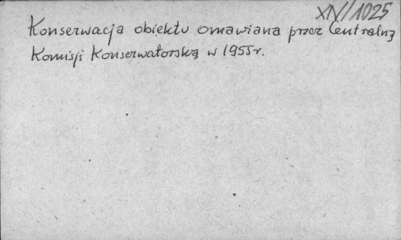 XIV/1025
Konserwacja obiektu omawiana przez Centralną
Komisji Konserwatorską w 1955r.